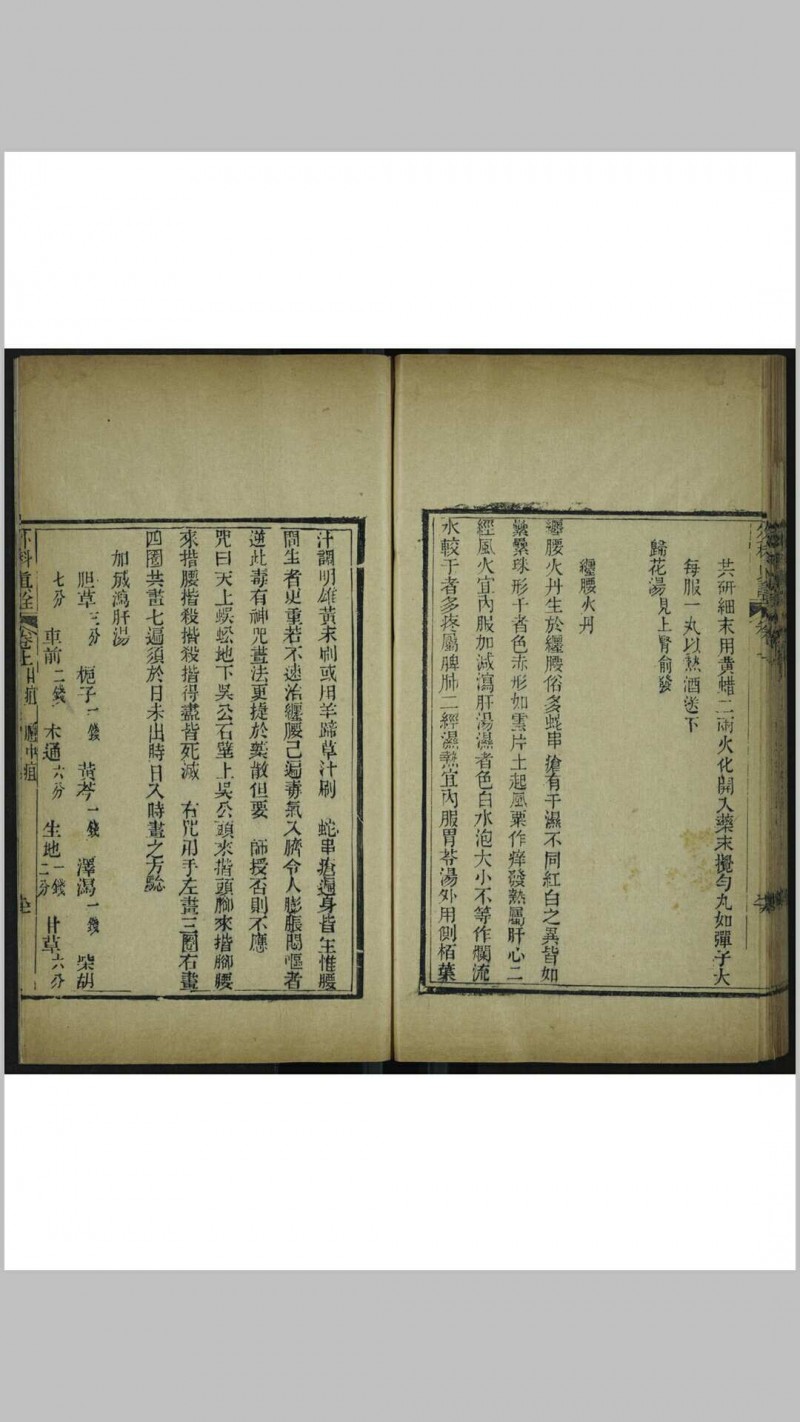 共研細末用黄蜡二兩火化開入藥末攪勻丸如彈子大
每服一丸以熱酒送下
歸花湯見上腎俞發
纏腰火丹
纏腰火丹生於纏腰俗多蛇串瘡有干濕不同紅白之異皆如
纍纍珠形干者色赤形如雲片上起風粟作痒發熱屬肝心二
經風火宜內服加減瀉肝湯濕者色白水泡大小不等作爛流
水較于者多疼屬脾肺二經濕熱宜內服胃苓湯外用側栢葉
汁調明雄黃末刷或用羊蹄草汁刷　蛇串瘡遍身皆生惟腰
間生者更重若不速治纏腰已遍毒氣入臍令人膨脹悶嘔者
逆此毒有神咒畫法更捷於藥散但要　師授否則不應
咒曰天上蜈蚣地下吳公石壁上吳公頭來揩頭腳來揩腳腰
來揩腰揩殺揩殺揩得盡皆死滅　右咒用手左畫三圈右畫
四圈共畫七遍須於日未出時日入時畫之方驗
加減瀉肝湯
胆草三分　梔子一錢　黄芩一錢　澤瀉一錢　柴胡
七分　車前二錢　木通六分　生地一錢二分　甘草六分
外科真詮　卷上